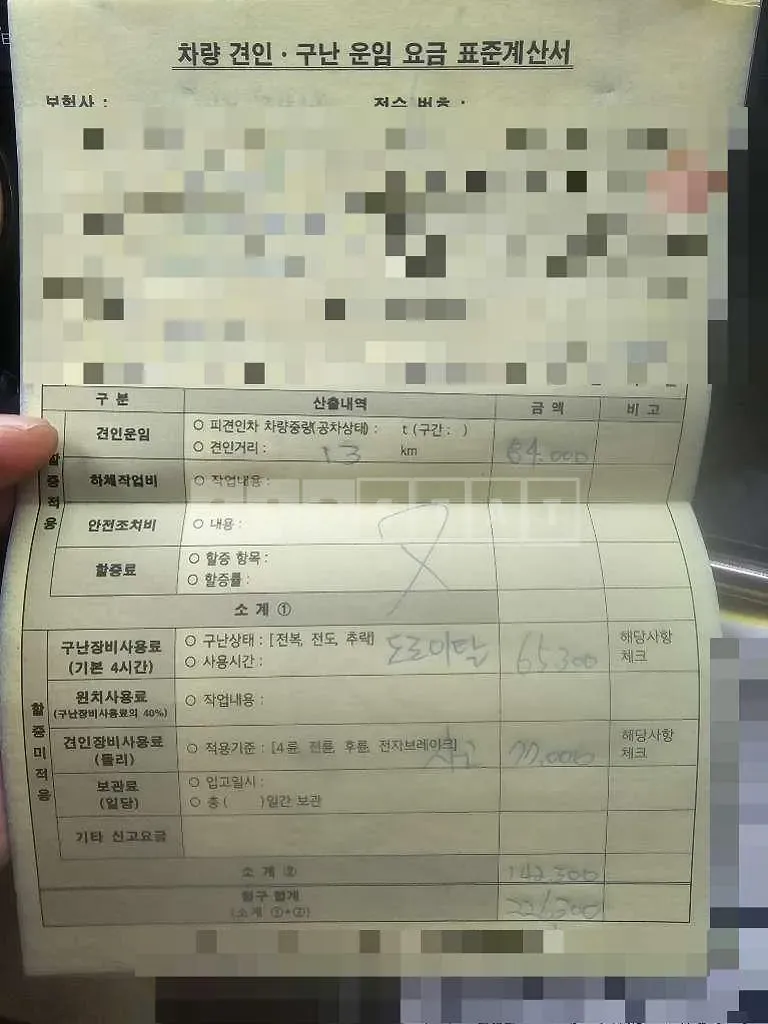 차량 견인 · 구난 운임 요금 표준계산서
보험사 : 접수 번호 :
구 분 산출내역 금 액 비 고
할증적용
견인운임 ○ 피견인차 차량중량(공차상태) : t (구간 : )
○ 견인거리 : 13 km 84.000
하체작업비 ○ 작업내용 :
안전조치비 ○ 내용 :
할증료 ○ 할증 항목 :
○ 할증률 :
소 계 ①
할증미적용
구난장비사용료 ○ 구난상태 : [전복, 전도, 추락] 도로이탈 65300 해당사항
(기본 4시간) ○ 사용시간 : 체크
윈치사용료 ○ 작업내용 :
(구난장비사용료의 40%)
견인장비사용료 ○ 적용기준 : [4륜, 전륜, 후륜, 전자브레이크] 77,000 해당사항
(돌리) 체크
보관료 ○ 입고일시 :
(일당) ○ 총 ( )일간 보관
기타 신고요금
소 계 ② 142.300
청구 합계 226300
(소계 ①+②)